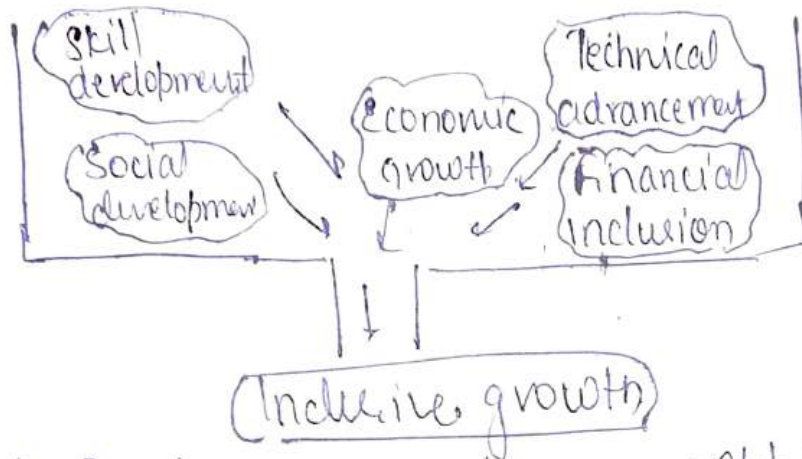 Skill
development
Social
development
Economic
growth
Technical
advancement
Financial
inclusion
Inclusive growth